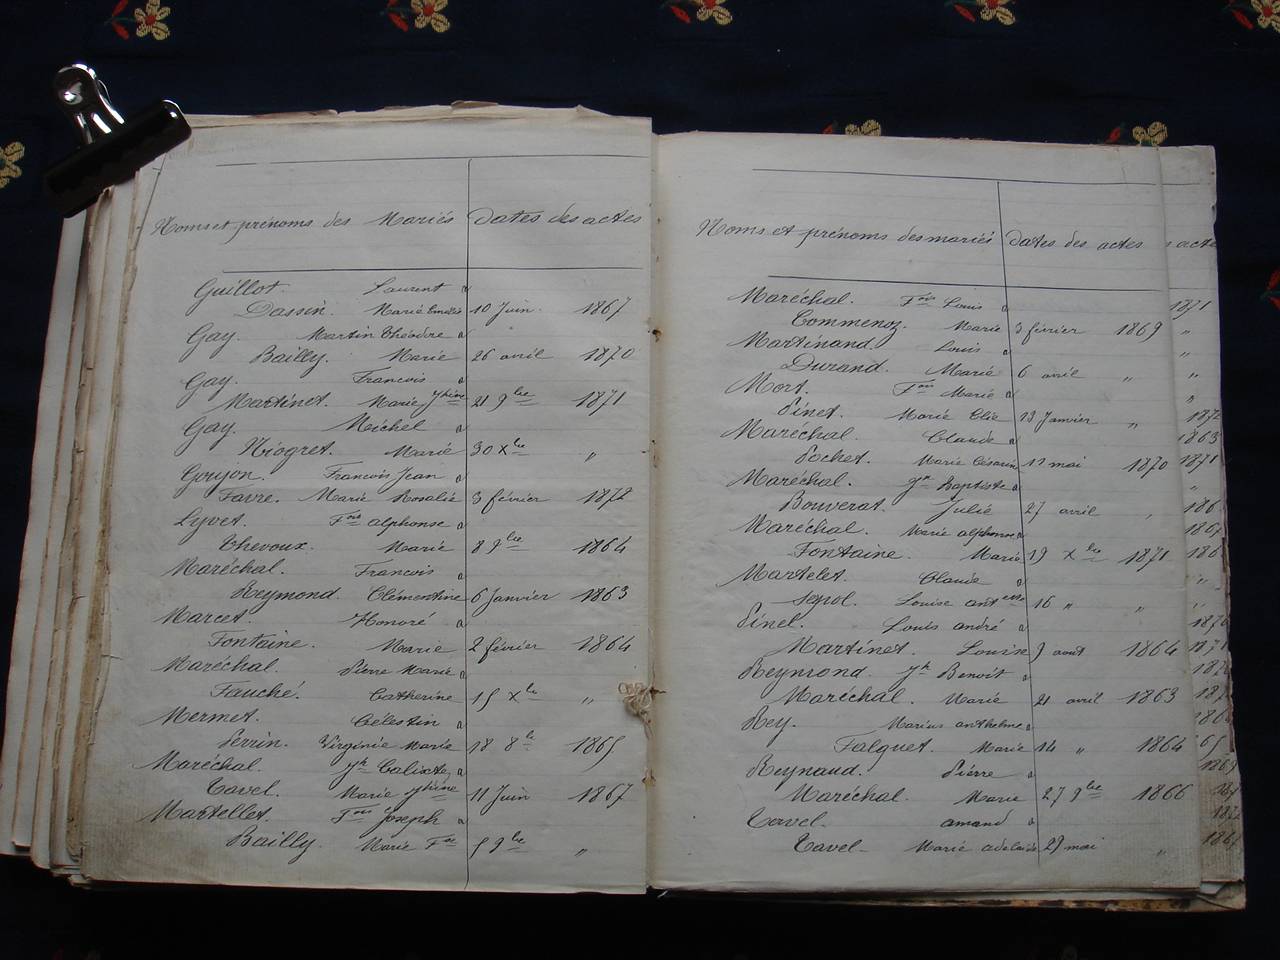 Noms et prénoms des Mariés Dates des actes
Guillot. Laurent a
Dassin. Marie Emélie 10 Juin. 1867
Gay. Martin Théodre a
Bailly. Marie 26 avril 1870
Gay. Francois a
Martinet. Marie Jhine 21 9bre 1871
Gay. Michel a
Niogret. Marie 30 Xbre "
Goujon. Francois Jean a
Favre. Marie Rosalie 3 février 1872
Lyvet. Fois alphonse a
Thevoux. Marie 8 9bre 1864
Maréchal. Francois a
Reymond. Clémentine 6 Janvier 1863
Marcet. Honoré a
Fontaine. Marie 2 février 1864
Maréchal. Pierre Marie a
Fauché. Catherine 15 Xbre "
Mermet. Célestin a
Perrin. Virginie Marie 18 8bre 1865
Maréchal. Jh Calixte a
Tavel. Marie Jhine 11 Juin 1867
Martellet. Fois Joseph a
Bailly. Marie Fse 5 9bre "
Noms et prénoms des mariés Dates des actes
Maréchal. Fois Louis a
Commenoz. Marie 3 février 1869
Martinand. Louis a
Durand. Marie 6 avril "
Mort. Fois Marie a
Pinet. Marie Elie 13 Janvier "
Maréchal. Claude a
Pochet. Marie Césarine 17 mai 1870
Maréchal. Jn Baptiste a
Bouverat. Julie 27 avril "
Maréchal. Marie alphonse a
Fontaine. Marie 19 Xbre 1871
Martelet. Claude a
Seyvol. Louise antette 16 " "
Pinel. Louis andré a
Martinet. Louise 9 août 1864
Reymond. Jh Benoit a
Maréchal. Marie 21 avril 1863
Rey. Marius anthelme a
Falquet. Marie 14 " 1864
Reynaud. Pierre a
Maréchal. Marie 27 9bre 1866
Tavel. amand a
Tavel. Marie adelaide 29 mai "
actes
1871
"
"
"
"
1872
1863
1871
"